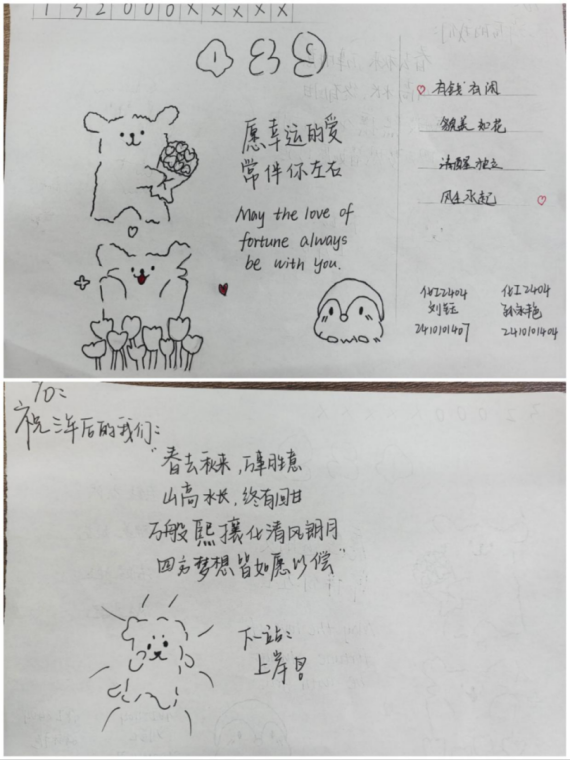 1 3 2 0 0 0 X X X X X
愿幸运的爱
常伴你左右
May the love of
fortune always
be with you.
有钱有闲
貌美如花
清醒独立
风生水起
化工2404
刘钰
2410101407
化工2404
2410101404
TO:
祝三年后的我们:
"春去秋来,万事胜意
山高水长,终有回甘
万般熙攘化清风朗月
四方梦想皆如愿以偿"
下一站:
上岸